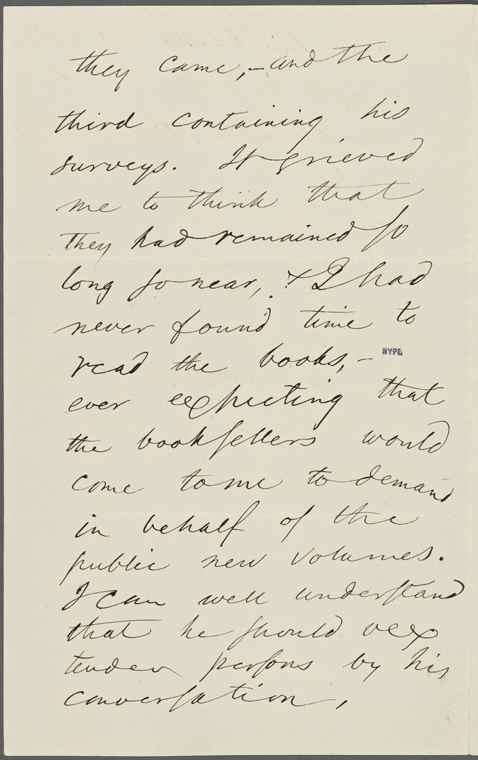 they came,—and the
third containing his
surveys. It grieved
me to think that
they had remained so
long so near, & I had
never found time to
read the books,—
NYPL
ever expecting that
the booksellers would
come to me to demand
in behalf of the
public new volumes.
I can well understand
that he should vex
tender persons by his
conversation,